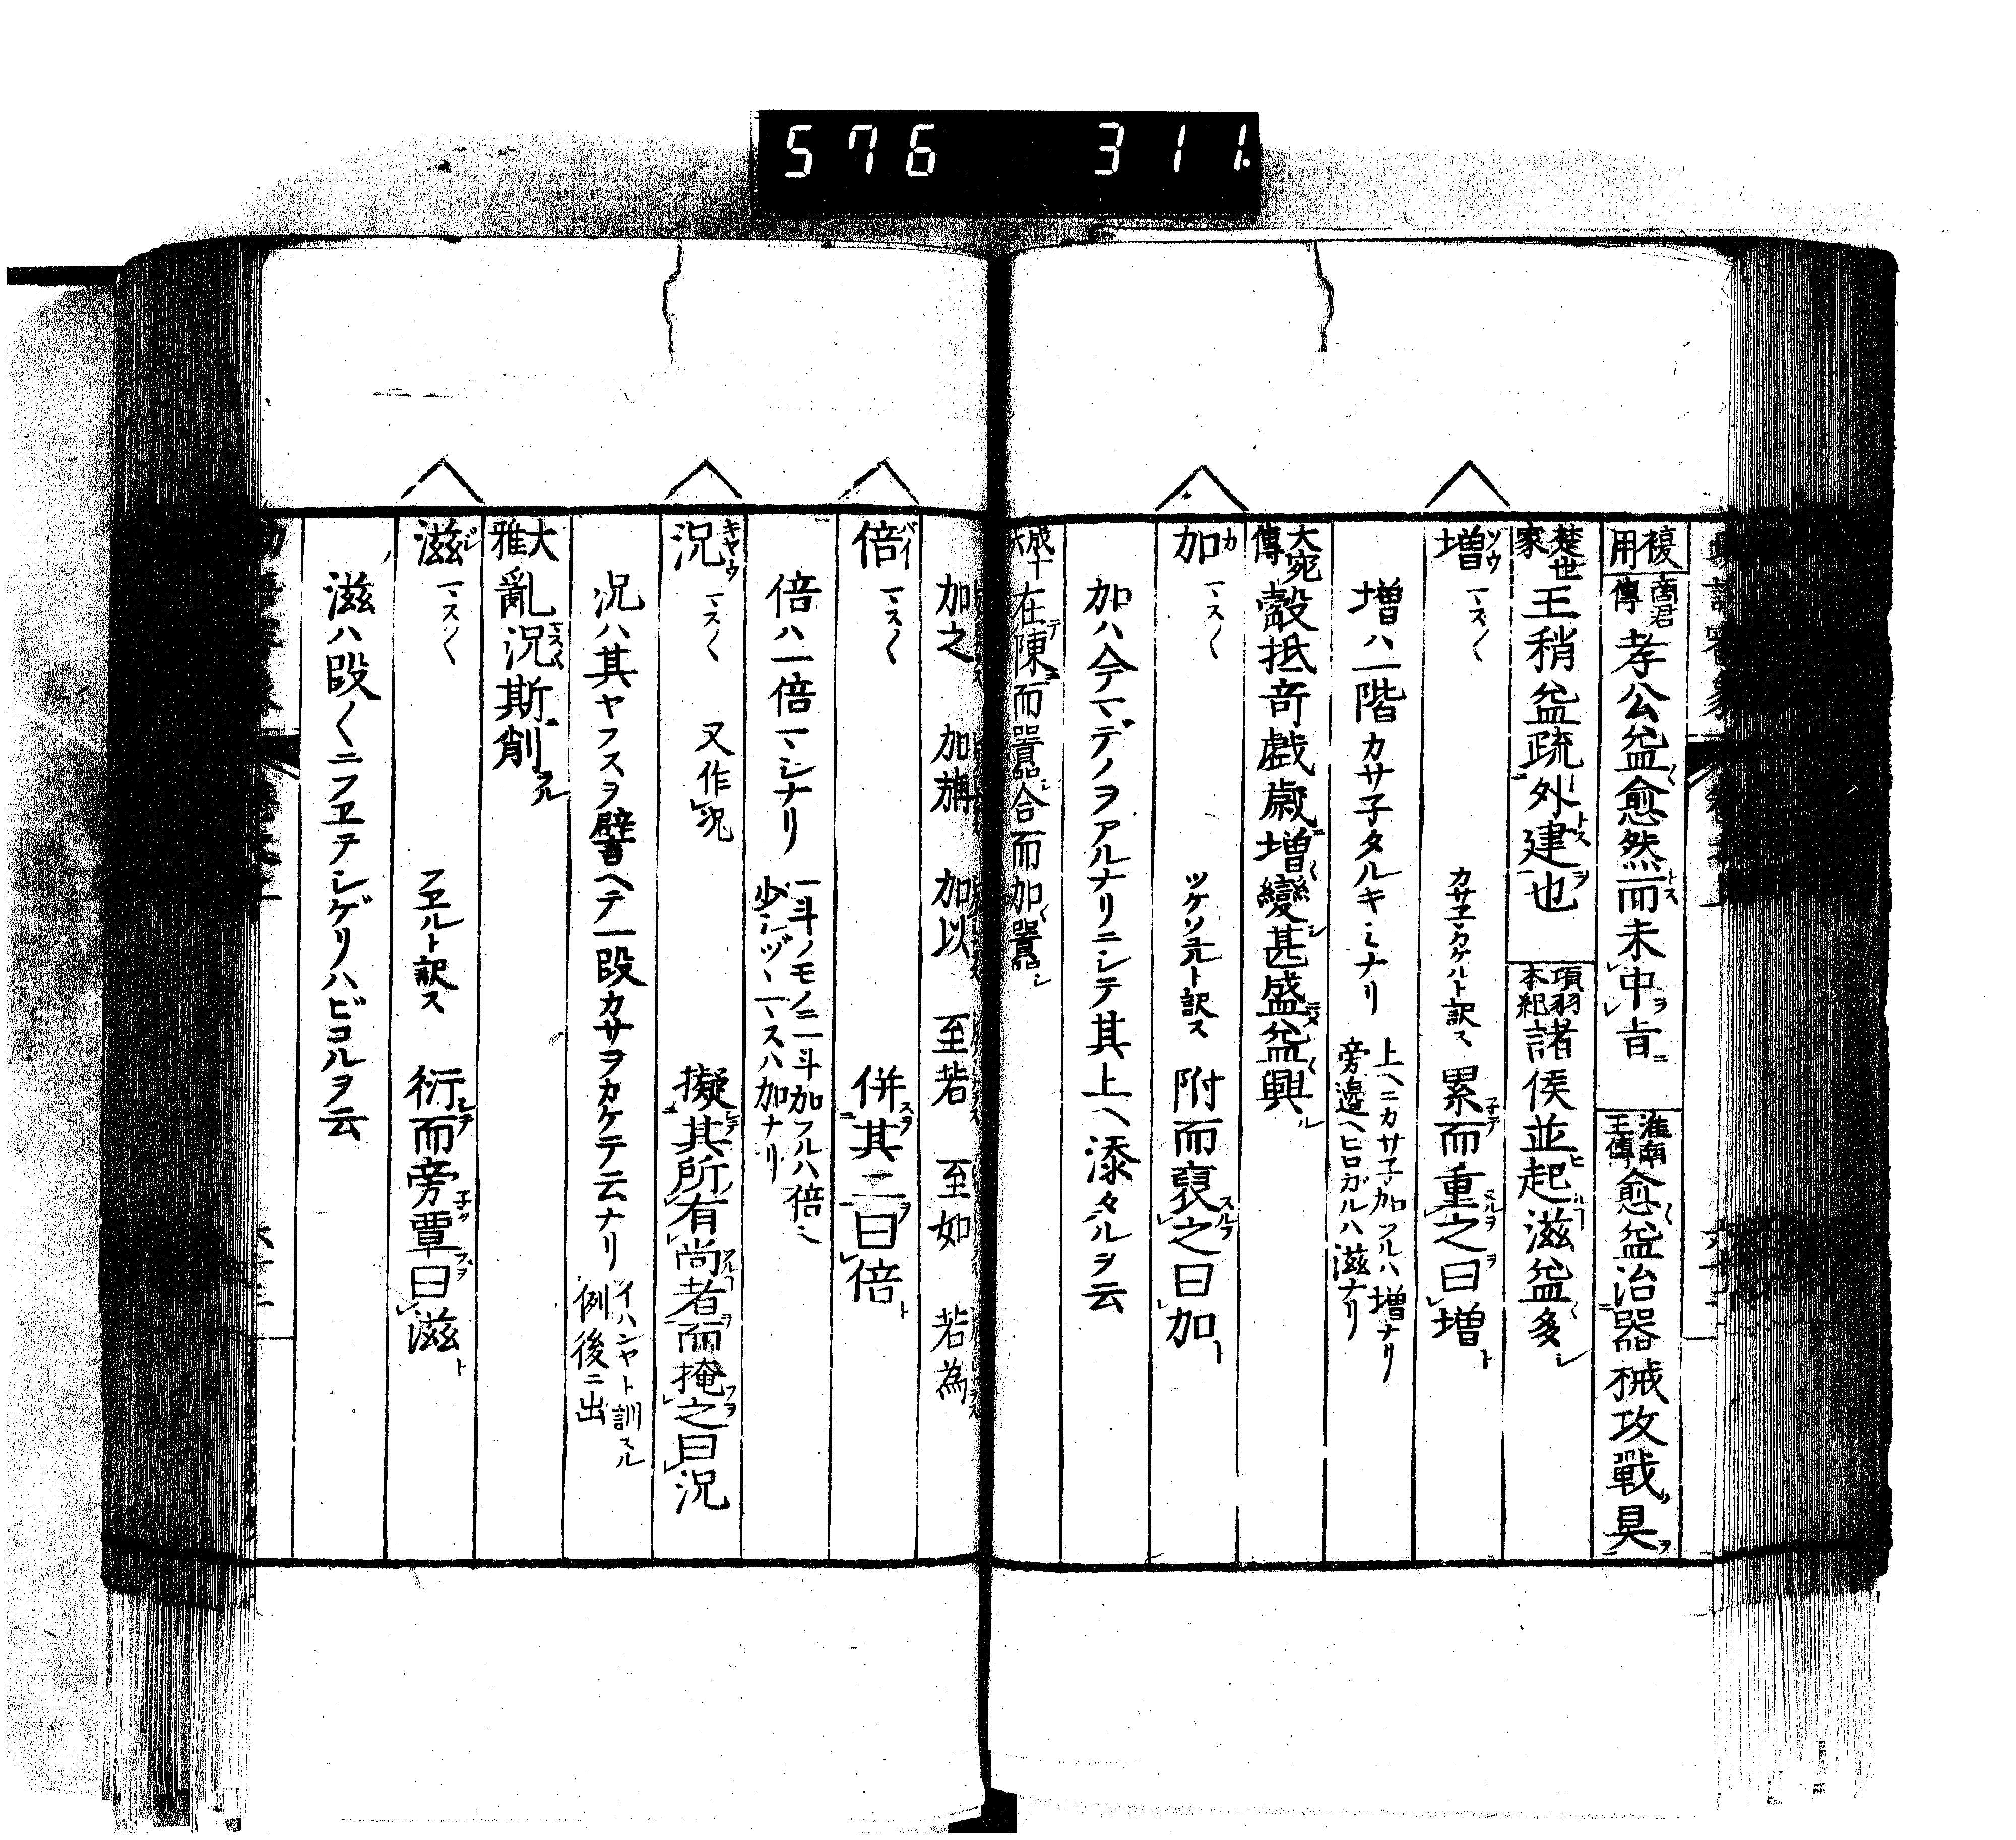 576 311.
複用 商君傳 孝公益愈然而未中旨 淮南王傳 愈益治器械攻戰具
楚世家 王稍益疏外建也 項羽本紀 諸侯並起滋益多
増 ゾウ マスく カサ子カケルト訳ス 累而重之曰増
増ハ一階カサ子タルキミナリ 上ヘニカサ子加フルハ増ナリ 旁邉ヘヒロガルハ滋ナリ
大宛傳 觳抵奇戯歳増變甚盛益興
加 カ マスく ツケソユルト訳ス 附而裒之曰加
加ハ今マデノヲアルナリニシテ其上ヘ添タルヲ云
成十六 在陳而囂合而加囂
加之 加旃 加以 至若 至如 若為
倍 バイ マスく 併其二曰倍
倍ハ一倍マシナリ 一斗ノモノニ一斗加フルハ倍ミ 少シヅヽマスハ加ナリ
况 キヤウ マスく 又作况 擬其所有尚者而掩之曰况
况ハ其ヤフスヲ譬ヘテ一段カサヲカケテ云ナリ イハンヤト訓スル例後ニ出
大雅 亂况斯削
滋 ジ マスく フヱルト訳ス 衍而旁覃曰滋
滋ハ段くニフヱテシゲリハビコルヲ云